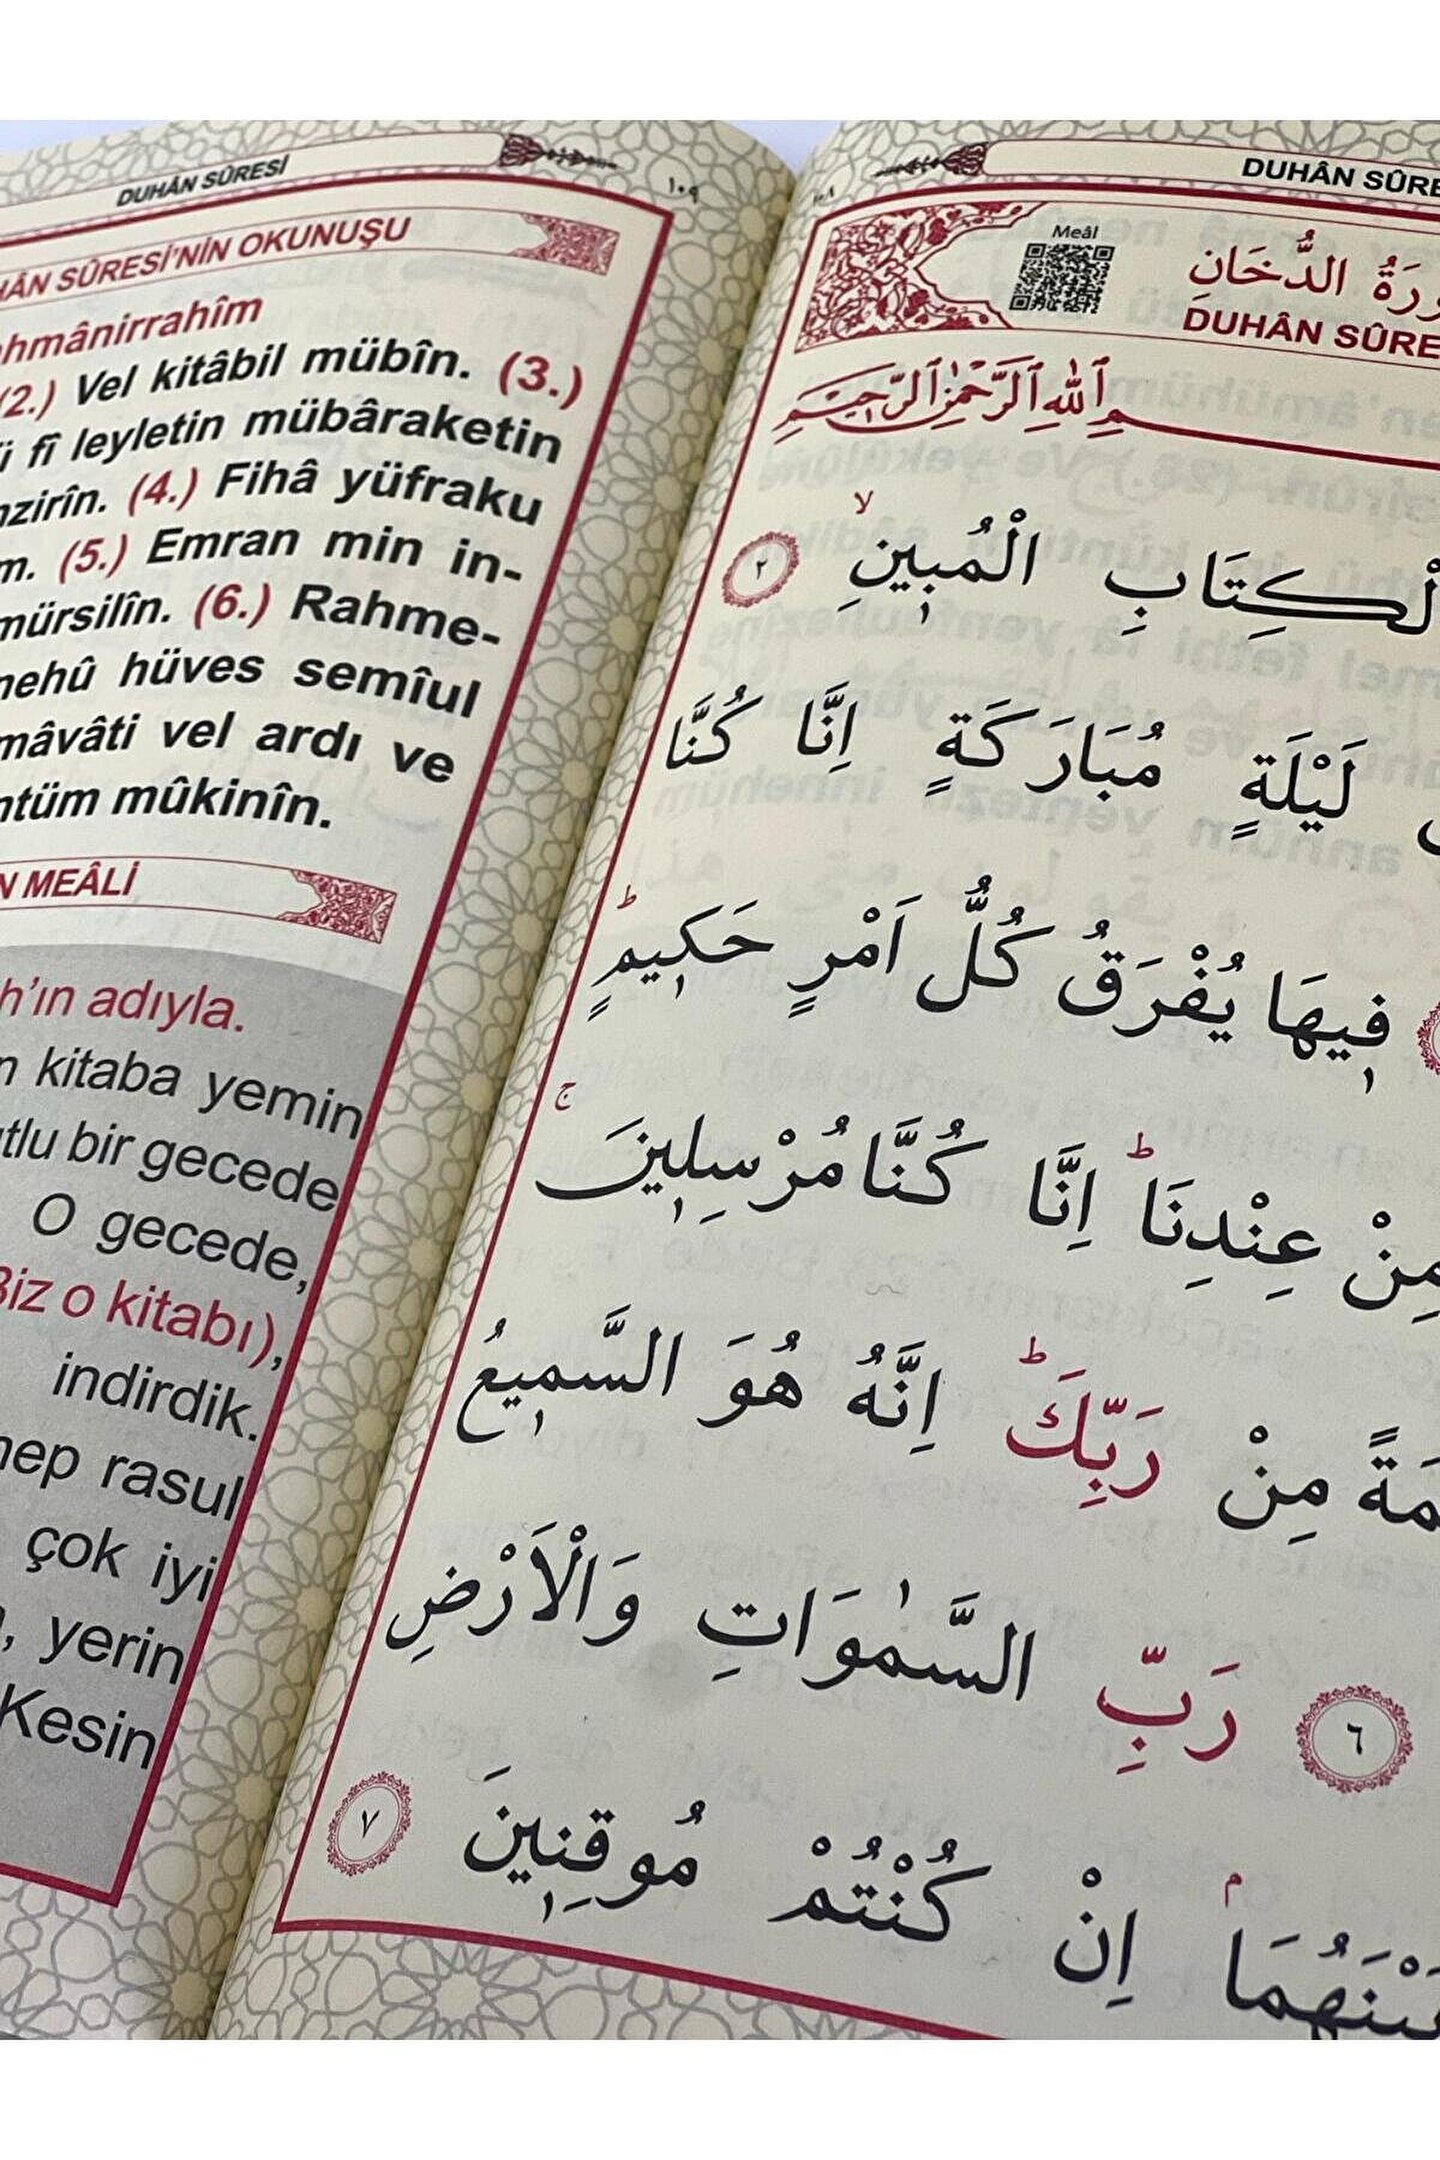 DUHÂN SÛRESİ
١٠٩
SÛRESİ'NİN OKUNUŞU
(2.) Vel kitâbil mübîn. (3.)
fî leyletin mübâraketin
(4.) Fihâ yüfraku
(5.) Emran min in-
mürsilîn. (6.) Rahme-
hüves semîul
vel ardı ve
mûkinîn.
MEÂLİ
adıyla.
kitaba yemin
bir gecede
O gecede,
Biz o kitabı),
indirdik.
rasul
çok iyi
yerin
Kesin
DUHÂN
Meâl
الدُّخَانِ
DUHÂN
اللهِ الرَّحْمٰنِ الرَّحِيمِ
الْمُبِينِۙ ٢
لَيْلَةٍ مُبَارَكَةٍ اِنَّا كُنَّا
فِيهَا يُفْرَقُ كُلُّ اَمْرٍ حَكِيمٍۜ
مِنْ عِنْدِنَاۜ اِنَّا كُنَّا مُرْسِلِينَۚ
مِنْ رَبِّكَۜ اِنَّهُ هُوَ السَّمِيعُ
٦ رَبِّ السَّمٰوَاتِ وَالْاَرْضِ
اِنْ كُنْتُمْ مُوقِنِينَ ٧